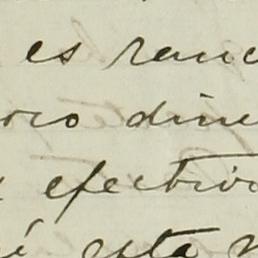 es ranc
oco dine
efectivo
é esta n